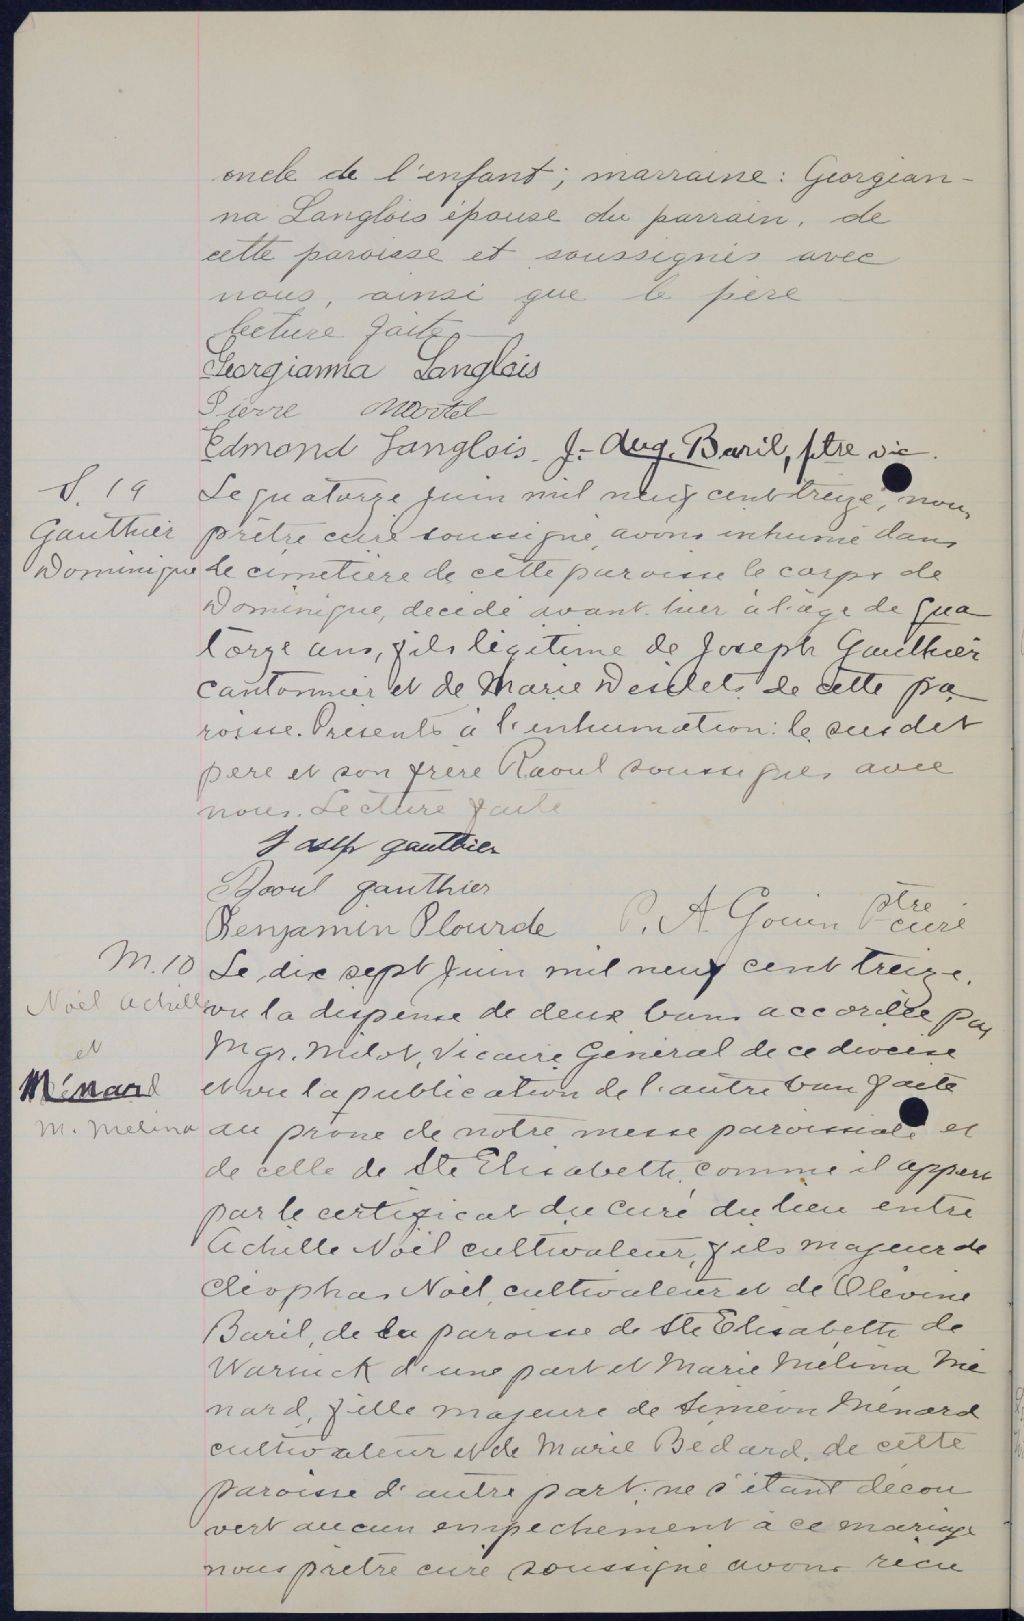 oncle de l'enfant; marraine: Georgian-
na Langlois épouse du parrain, de
cette paroisse et soussignés avec
nous, ainsi que le père
lecture faite
Georgianna Langlois
Pierre Martel
Edmond Langlois. J.-Aug. Baril, ptre vic.
S. 19
Gauthier
Dominique
Le quatorze juin mil neuf cent treize, nous
prêtre curé soussigné, avons inhumé dans
le cimetière de cette paroisse le corps de
Dominique, décédé avant hier à l'âge de qua
torze ans, fils légitime de Joseph Gauthier
cantonnier et de Marie Desilets de cette pa
roisse. Présents à l'inhumation: le susdit
père et son frère Raoul soussignés avec
nous. Lecture faite
Joseph gauthier
Raoul gauthier
Benjamin Plourde P. A. Gouin Ptre curé
M. 10
Noël Achille
et
Ménard
M. Melina
Le dix sept juin mil neuf cent treize,
vu la dispense de deux bans accordée par
Mgr. Milot, Vicaire Général de ce diocèse
et vu la publication de l'autre ban faite
au prone de notre messe paroissiale et
de celle de Ste Elisabeth, comme il appert
par le certificat du curé du lieu entre
Achille Noël cultivateur, fils majeur de
Cléophas Noël, cultivateur et de Olévine
Baril, de la paroisse de Ste Elisabeth de
Warwick d'une part et Marie Mélina Mé
nard, fille majeure de Siméon Ménard
cultivateur et de Marie Bédard, de cette
paroisse d'autre part; ne s'étant décou
vert aucun empechement à ce mariage
nous prêtre curé soussigné avons reçu